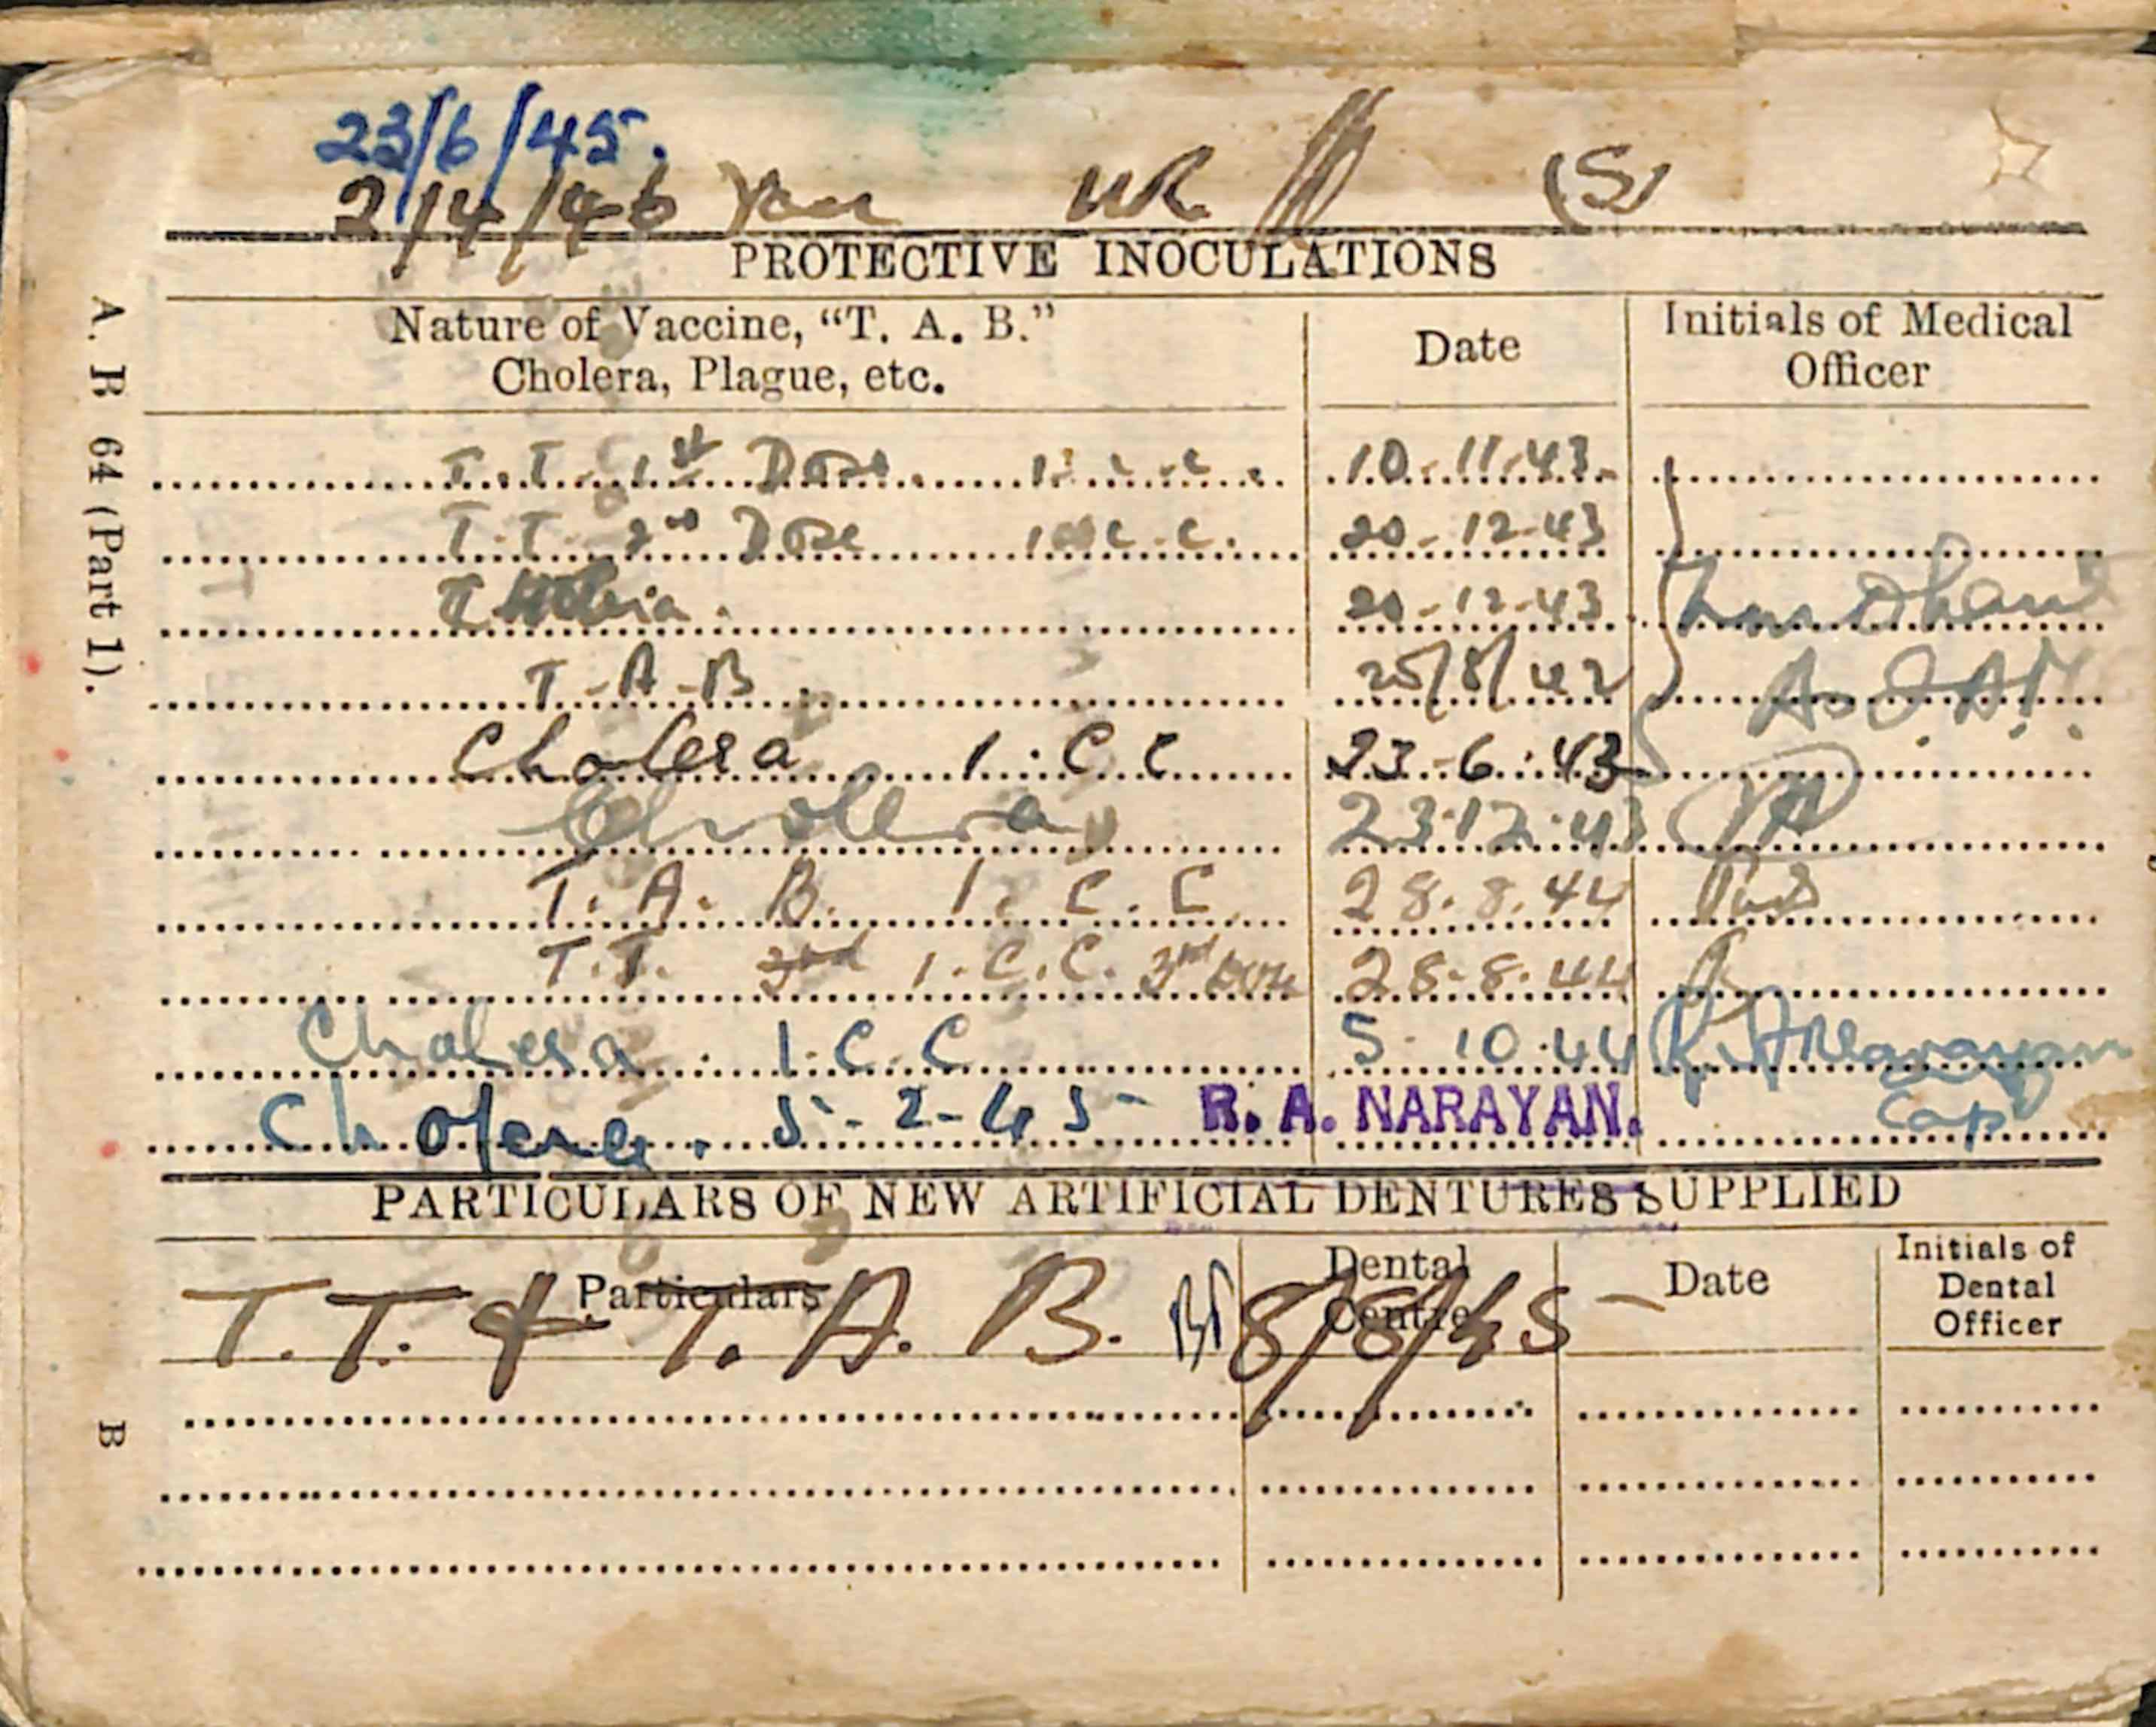 23/6/45.
2/4/46 Vacc (S)
PROTECTIVE INOCULATIONS
Nature of Vaccine, “T. A. B.” Date Initials of Medical
Cholera, Plague, etc. Officer
T.T. 1st Dose 1 c.c. 10.11.43.
T.T. 2nd Dose 1 c.c. 20-12-43
20-12-43
T.A.B. 25/8/42
Cholera 1.C.C 23-6-43
Cholera 23.12.43
T.A.B. 1.C.C 28.8.44
T.T. 1.C.C. 3rd dose 28.8.44
Cholera. 1.C.C 5-10-44 R.A.Narayan
Cholera. 5-2-45- R. A. NARAYAN. Capt
PARTICULARS OF NEW ARTIFICIAL DENTURES SUPPLIED
Particulars Dental Centre Date Initials of Dental Officer
T.T. & T.A.B. 8/8/45-
A. B 64 (Part 1).
B